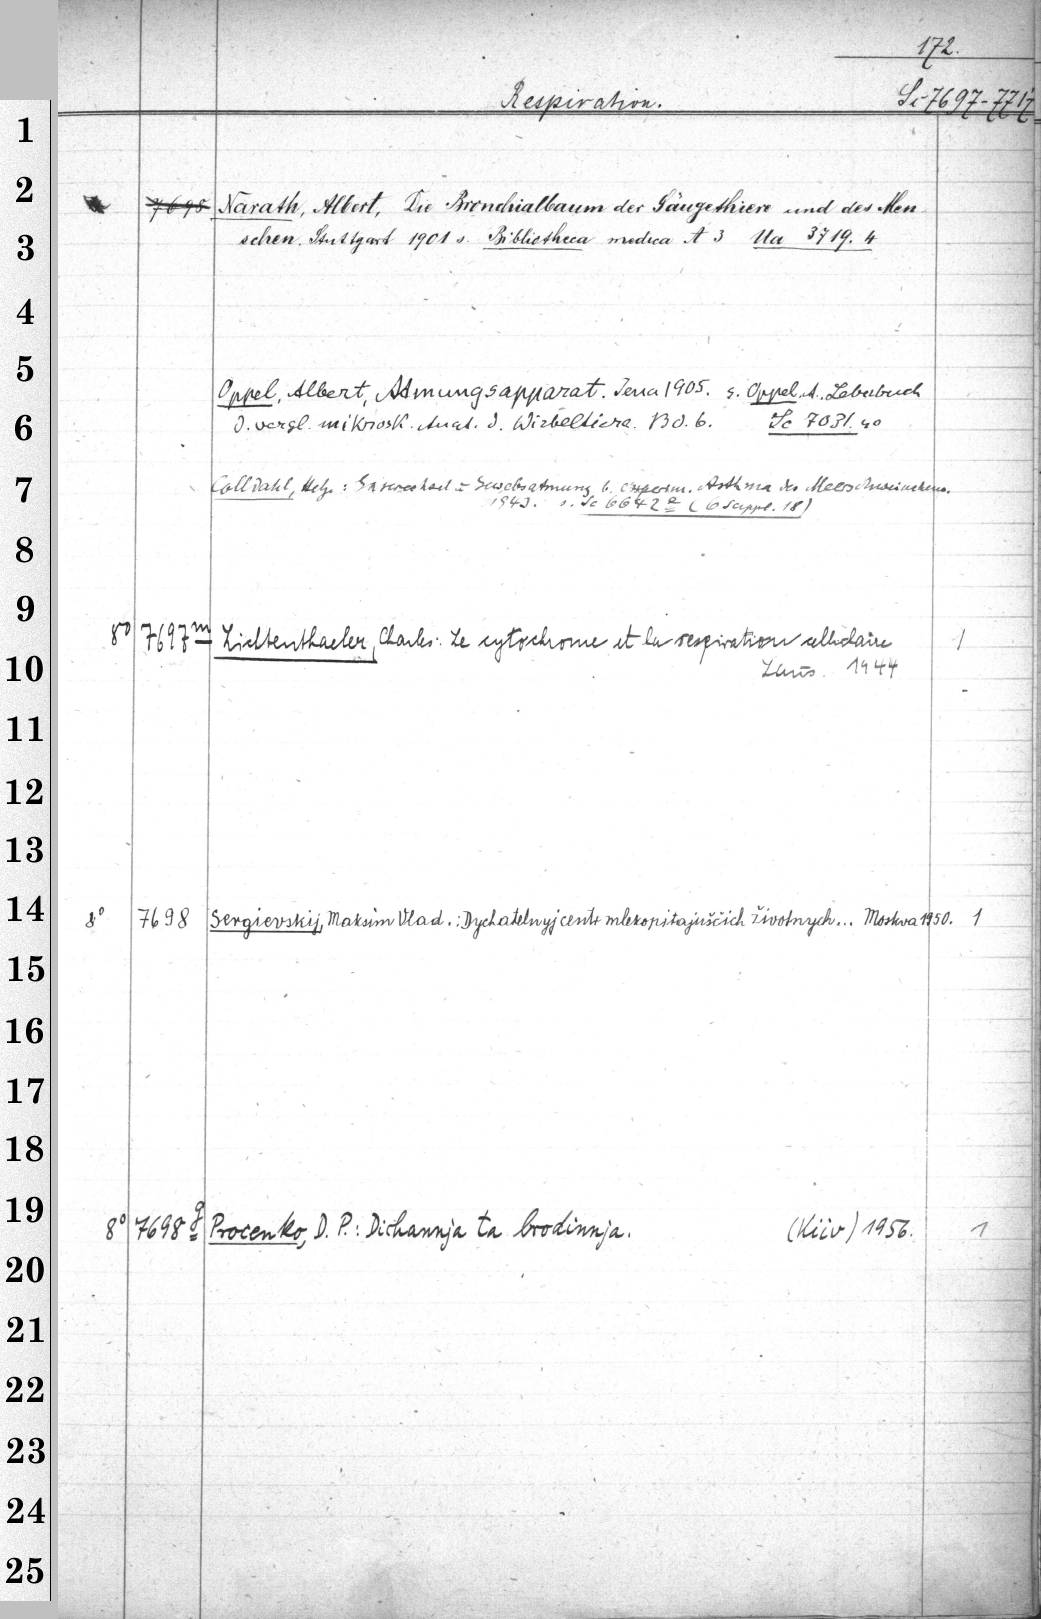 172.
Respiration. Sc 7697-7717
1
2
7698 Narath, Albert, Die Bronchialbaum der Säugethiere und des Men-
3
schen. Stuttgart 1901 s. Bibliotheca medica A 3 Ua 3719. 4
4
5
Oppel, Albert, Atmungsapparat. Jena 1905. s. Oppel, A., Lehrbuch
6
d. vergl. mikrosk. Anat. d. Wirbeltiere. Bd. 6. Sc 7031. 40
7
Colldahl, Helge: Gaswechsel u Gewebsatmung b. experim. Asthma des Meerschweinchens.
1943. s. Sc 6642 a (6 Suppl. 18)
8
9
8° 7697 m Lichtenthaeler, Charles: Le cytochrome et la respiration cellulaire 1
10
Laus. 1944
11
12
13
14
8° 7698 Sergievskij, Maksim Vlad.: Dychatelnyj centr mlekopitajuščich životnych... Moskva 1950. 1
15
16
17
18
19
8° 7698 g Procenko, D. P.: Dichannja ta brodinnja. (Kiiv) 1956. 1
20
21
22
23
24
25